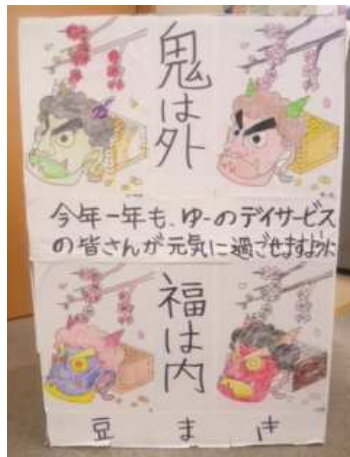 鬼は外
今年一年も、ゆーのデイサービス
の皆さんが元気に過ごせますように
福は内
豆まき